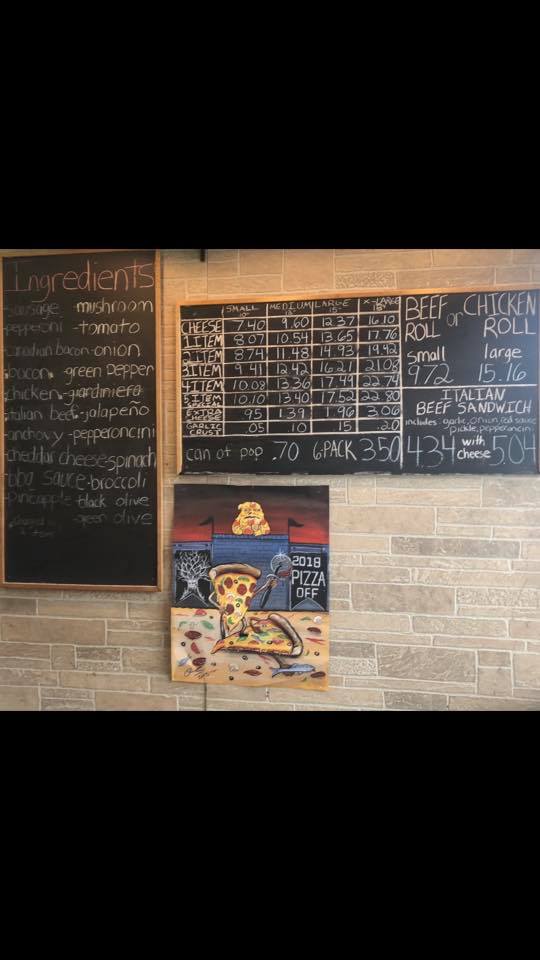 Ingredients
-sausage -mushroom
-pepperoni -tomato
-canadian bacon -onion
-bacon -green pepper
-chicken -giardiniera
-italian beef -jalapeño
-anchovy -pepperoncini
-cheddar cheese -spinach
-bbq sauce -broccoli
-pineapple -black olive
-green olive
SMALL 10" MEDIUM LARGE 15" X-LARGE 18"
CHEESE 7.40 9.60 12.37 16.10
1 ITEM 8.07 10.54 13.65 17.76
2 ITEM 8.74 11.48 14.93 19.42
3 ITEM 9.41 12.42 16.21 21.08
4 ITEM 10.08 13.36 17.49 22.74
5 ITEM SPECIAL 10.10 13.40 17.52 22.80
EXTRA CHEESE .95 1.39 1.96 3.06
GARLIC CRUST .05 .10 .15 .20
can of pop .70 6-PACK 3.50
BEEF ROLL or CHICKEN ROLL
small large
9.72 15.16
ITALIAN
BEEF SANDWICH
includes garlic, onion, red sauce,
pickle, pepperoncini
4.34 with cheese 5.04
2018
PIZZA
OFF